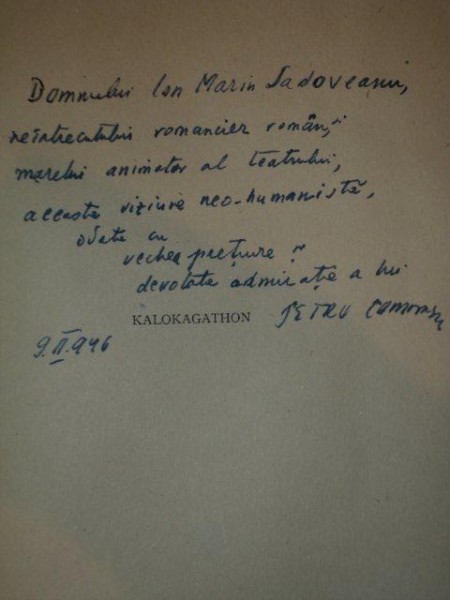 Domnului Ion Marin Sadoveanu,
neîntrecutului romancier român, și
marelui animator al teatrului,
această viziune neo-humanistă,
odată cu
vechea prețuire și
devotata admirație a lui
PETRU Comarnescu
KALOKAGATHON
9.II.946